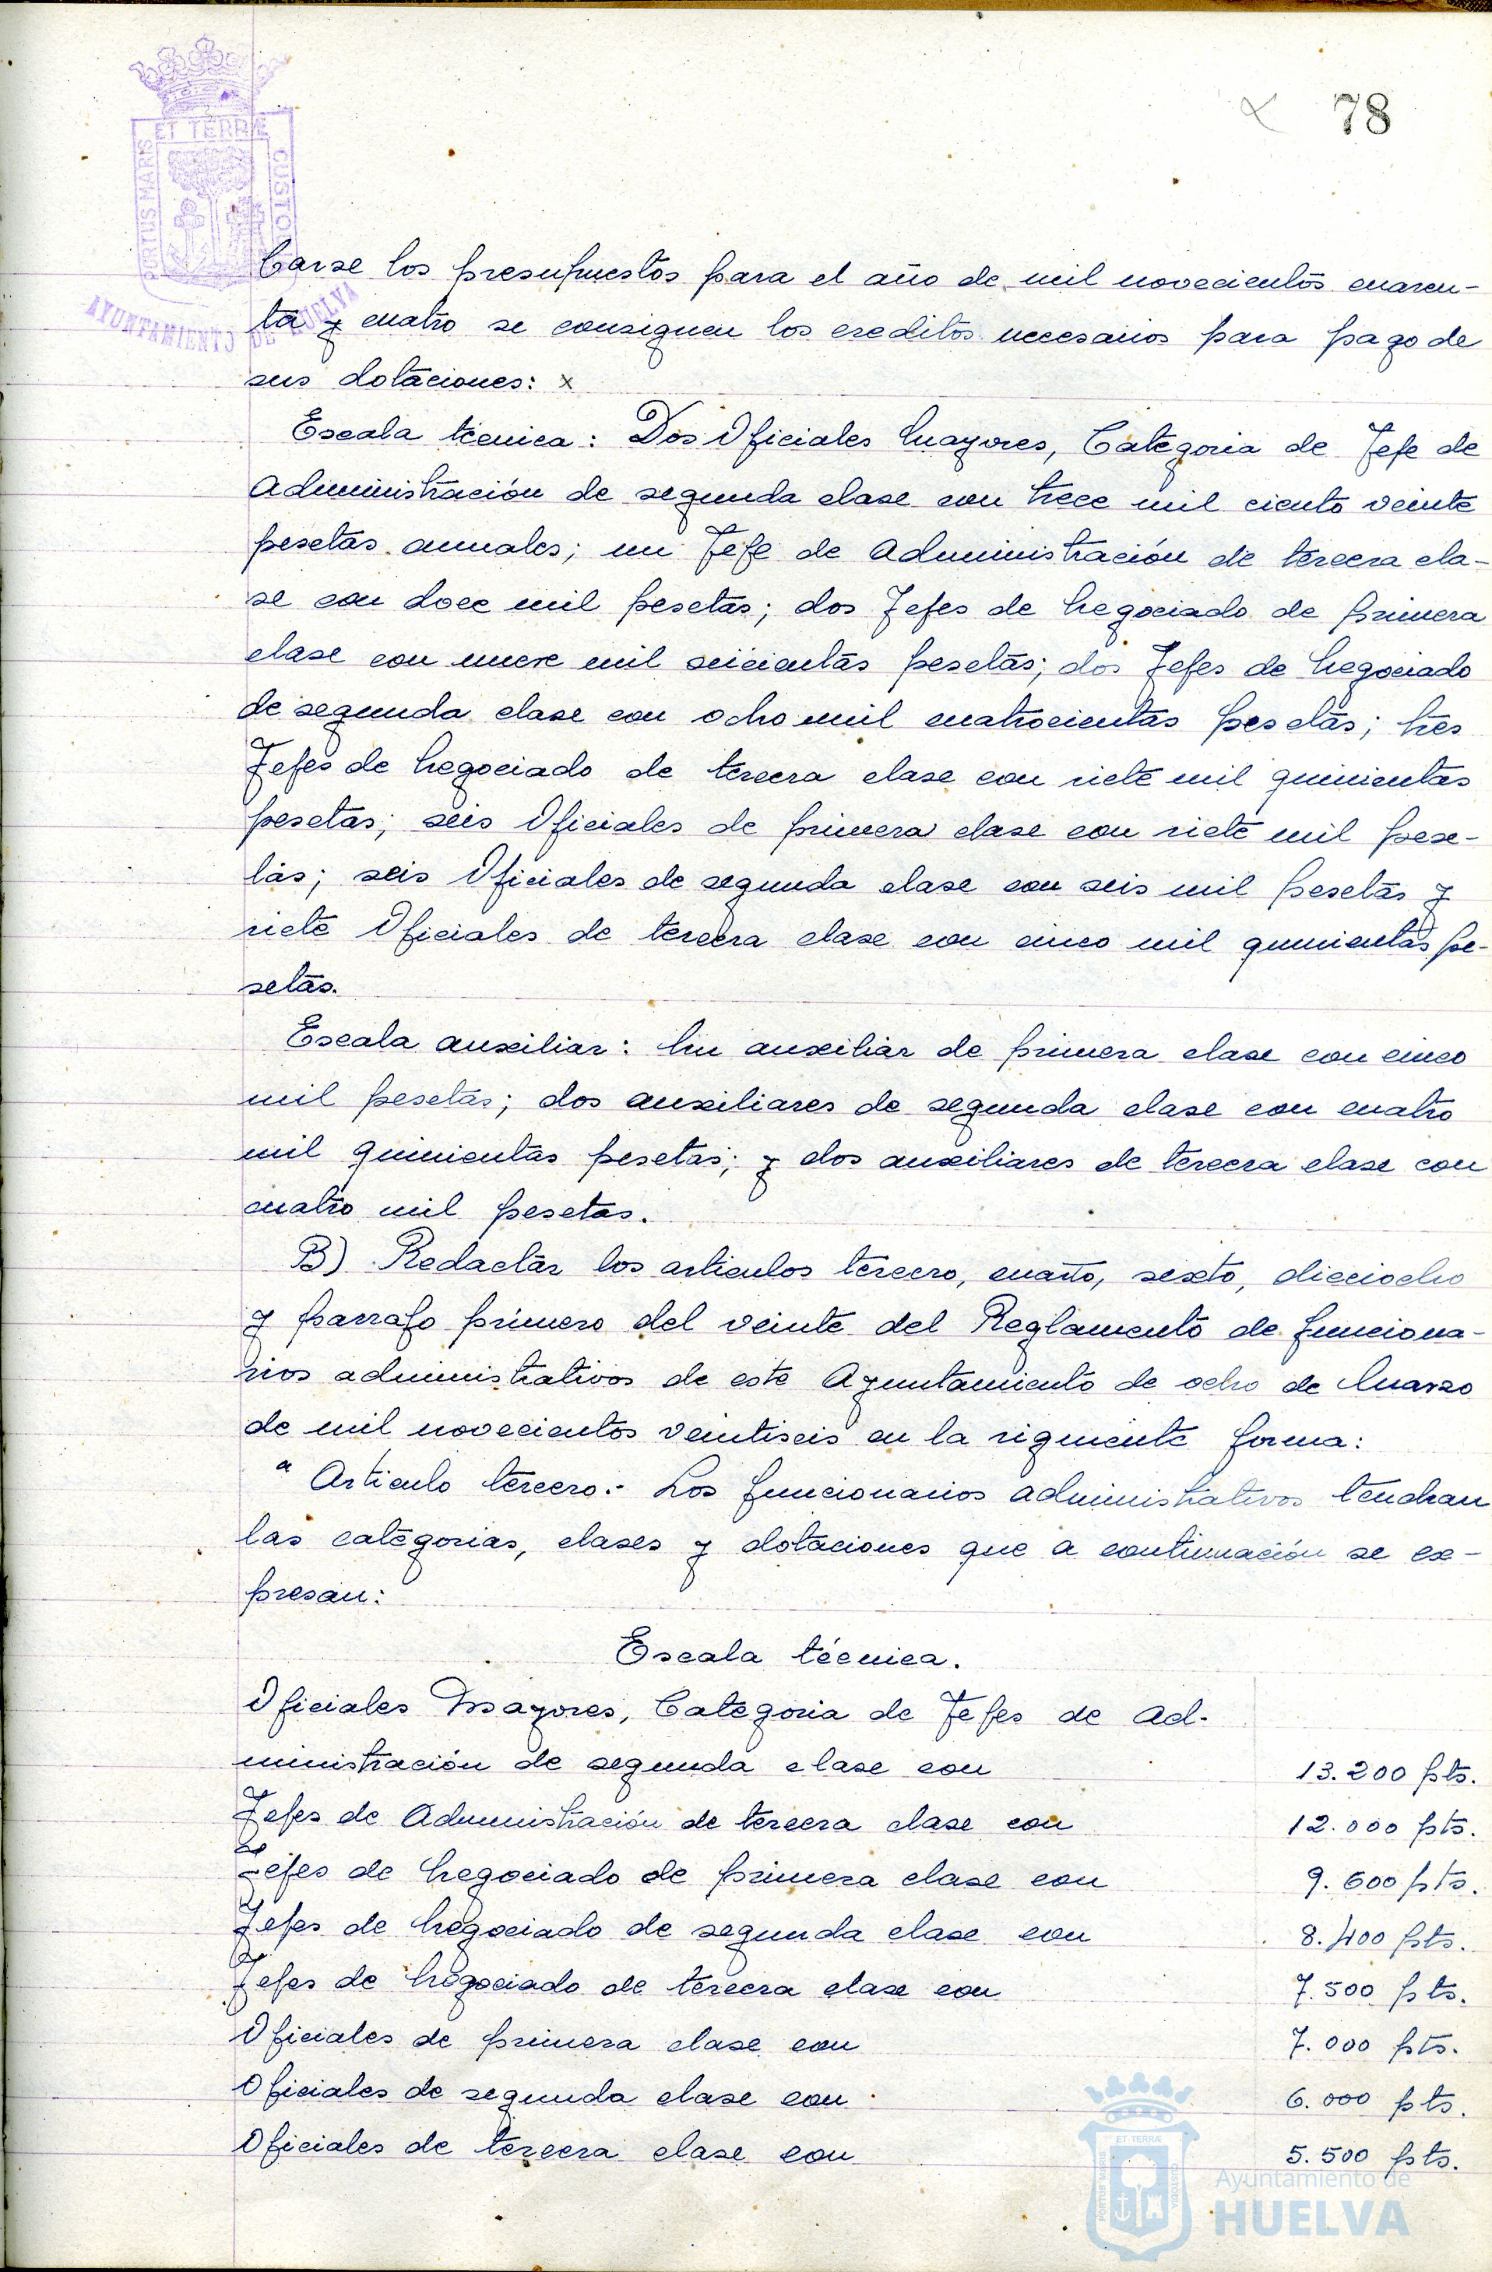 78
PORTUS MARIS ET TERRÆ CUSTO
AYUNTAMIENTO DE HUELVA
carse los presupuestos para el año de mil novecientos cuaren-
ta y cuatro se consignen los creditos necesarios para pago de
sus dotaciones: x
Escala técnica: Dos Oficiales Mayores, Categoria de Jefe de
Administración de segunda clase con trece mil ciento veinte
pesetas anuales; un Jefe de Administración de tercera cla-
se con doce mil pesetas; dos Jefes de Negociado de primera
clase con nueve mil seicientas pesetas; dos Jefes de Negociado
de segunda clase con ocho mil cuatrocientas pesetas; tres
Jefes de Negociado de tercera clase con siete mil quinientas
pesetas; seis Oficiales de primera clase con siete mil pese-
tas; seis Oficiales de segunda clase con seis mil pesetas y
siete Oficiales de tercera clase con cinco mil quinientas pe-
setas.
Escala auxiliar: Un auxiliar de primera clase con cinco
mil pesetas; dos auxiliares de segunda clase con cuatro
mil quinientas pesetas; y dos auxiliares de tercera clase con
cuatro mil pesetas.
B) Redactar los articulos tercero, cuarto, sexto, dieciocho
y parrafo primero del veinte del Reglamento de funciona-
rios administrativos de este Ayuntamiento de ocho de Marzo
de mil novecientos veintiseis en la siguiente forma:
" Articulo tercero.- Los funcionarios administrativos tendran
las categorias, clases y dotaciones que a continuación se ex-
presan:
Escala técnica.
Oficiales Mayores, Categoria de Jefes de Ad-
ministración de segunda clase con 13.200 pts.
Jefes de Administración de tercera clase con 12.000 pts.
Jefes de Negociado de primera clase con 9.600 pts.
Jefes de Negociado de segunda clase con 8.400 pts.
Jefes de Negociado de tercera clase con 7.500 pts.
Oficiales de primera clase con 7.000 pts.
Oficiales de segunda clase con 6.000 pts.
Oficiales de tercera clase con 5.500 pts.
PORTUS MARIS ET TERRÆ CUSTODIA
Ayuntamiento de
HUELVA